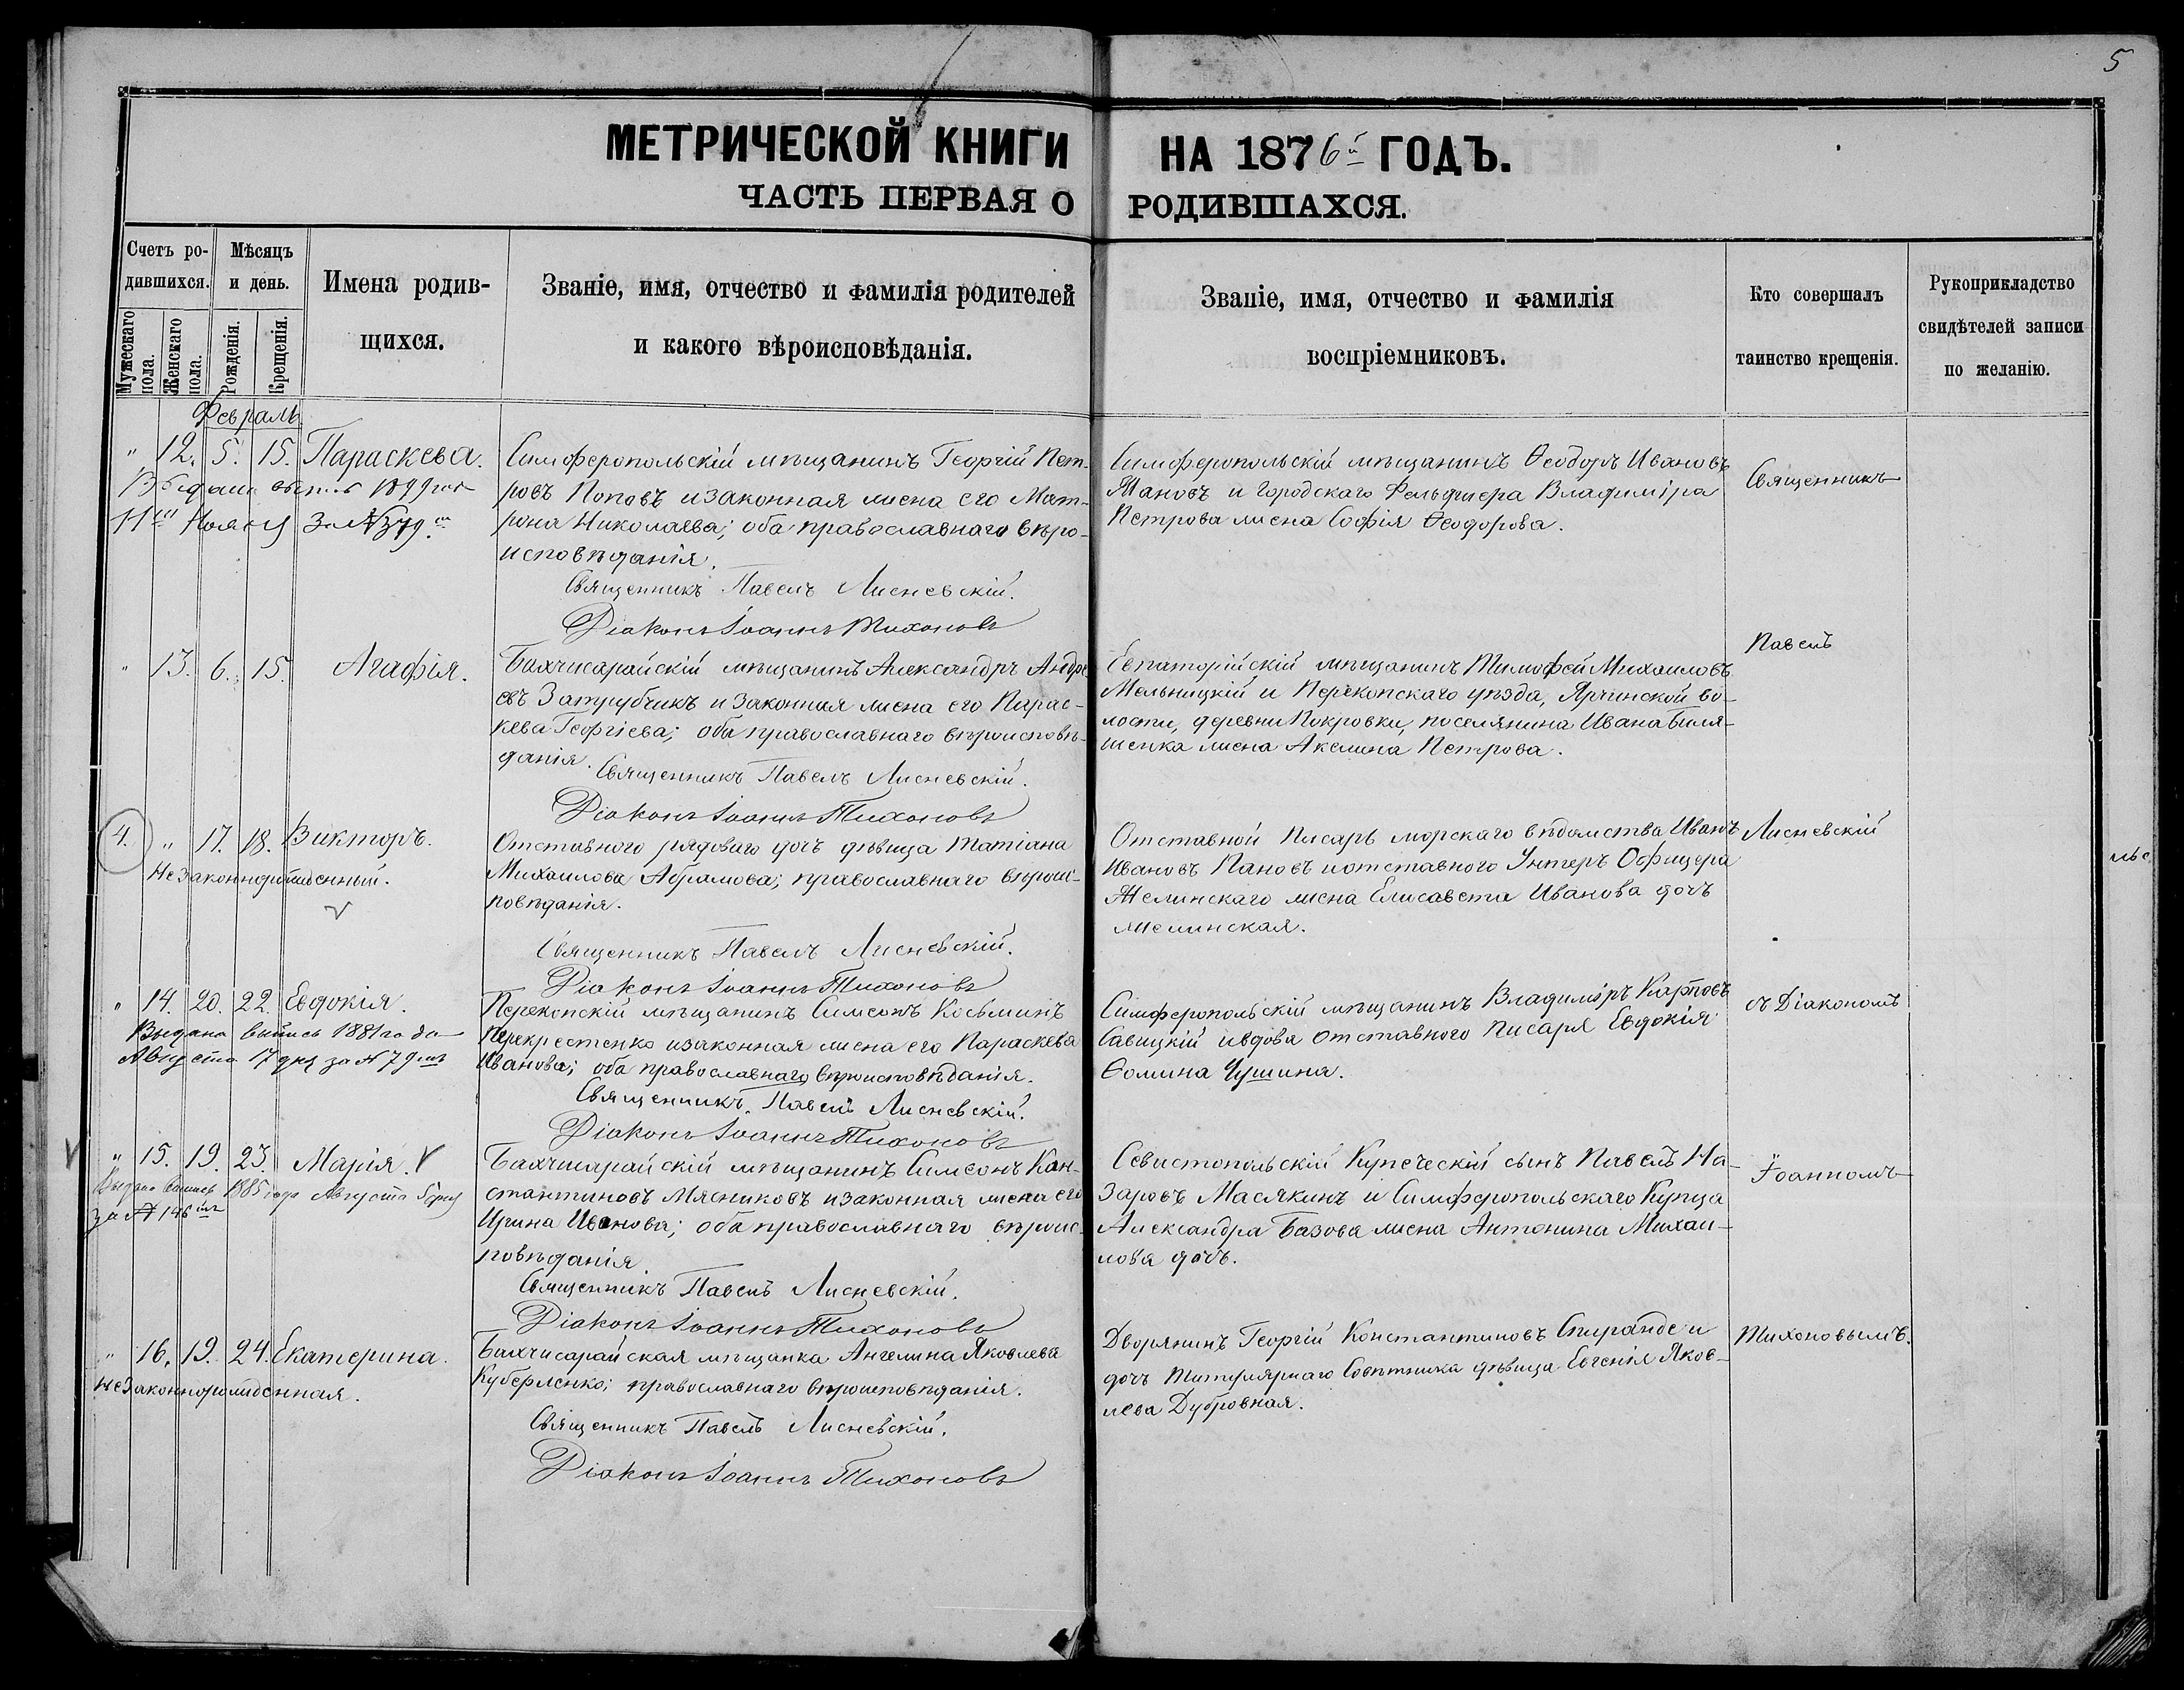 5
МЕТРИЧЕСКОЙ КНИГИ НА 1876й ГОДЪ.
ЧАСТЬ ПЕРВАЯ О РОДИВШАХСЯ.
Счетъ ро-
дившихся.
Мужескаго пола.
Женскаго пола.
Мѣсяцъ
и день.
Рожденія.
Крещенія.
Имена родив-
щихся.
Званіе, имя, отчество и фамилія родителей
и какого вѣроисповѣданія.
Званіе, имя, отчество и фамилія
воспріемниковъ.
Кто совершалъ
таинство крещенія.
Рукоприкладство
свидѣтелей записи
по желанію.
Февраль
" 12. 5. 15. Параскева.
За № 379.
Симферопольскій мѣщанинъ Георгій Пет-
ровъ Поповъ и законная жена его Мат-
рона Николаева; оба православнаго вѣро-
исповѣданія.
Священникъ Павелъ Лисневскій.
Діаконъ Іоаннъ Тихоновъ
Симферопольскій мѣщанинъ Ѳеодоръ Ивановъ
Мановъ и городскаго Фельдшера Владиміра
Петрова жена Софія Ѳеодорова.
Священникъ
" 13. 6. 15. Агафія.
Бахчисарайскій мѣщанинъ Александръ Андре
евъ Затрубчикъ и законная жена его Парас-
кева Георгіева; оба православнаго вѣроисповѣ-
данія.
Священникъ Павелъ Лисневскій.
Діаконъ Іоаннъ Тихоновъ
Евпаторійскій мѣщанинъ Тимофей Михаиловъ
Мельницкій и Перекопскаго уѣзда, во-
лости, деревни Покровки, поселянина Ивана Биля-
шенка жена Акелина Петрова.
Павелъ
4. " 17. 18. Викторъ.
Незаконнорожденный.
Отставного рядового дочь дѣвица Татіана
Михаилова Абрамова; православнаго вѣроис-
повѣданія.
Священникъ Павелъ Лисневскій.
Діаконъ Іоаннъ Тихоновъ
Отставной Писарь морскаго вѣдомства Иванъ
Ивановъ Пановъ и отставного Унтеръ Оофицера
Желинскаго жена Елисавета Иванова дочь
Желинская.
Лисневскій
" 14. 20. 22. Евдокія.
Выдана выпись 1881 года
Августа 17 дня за № 79мъ
Перекопскій мѣщанинъ Симеонъ Косьминъ
Перекрестенко и законная жена его Параскева
Иванова; оба православнаго вѣроисповѣданія.
Священникъ Павелъ Лисневскій.
Діаконъ Іоаннъ Тихоновъ
Симферопольскій мѣщанинъ Владиміръ Карповъ
Савицкій и вдова отставного писаря Евдокія
Ѳомина Чушина.
съ Діакономъ
" 15. 19. 23. Марія. V
Выдана выпись 1885 года Августа
за № 146мъ
Бахчисарайскій мѣщанинъ Симеонъ Кон-
стантиновъ Мясниковъ и законная жена его
Ирина Иванова; оба православнаго вѣроис-
повѣданія.
Священникъ Павелъ Лисневскій.
Діаконъ Іоаннъ Тихоновъ
Севастопольскій Купеческій сынъ Павелъ На-
заровъ Масякинъ и Симферопольскаго Купца
Александра Базова жена Антонина Михаи-
лова дочь.
Іоанномъ
" 16. 19. 24. Екатерина.
Незаконнорожденная.
Бахчисарайская мѣщанка Ангелина Яковлева
Куберленко; православнаго вѣроисповѣданія.
Священникъ Павелъ Лисневскій.
Діаконъ Іоаннъ Тихоновъ
Дворянинъ Георгій Константиновъ Спиранде и
дочь Титулярнаго Совѣтника дѣвица Евгенія Яков-
лева Дубровная.
Тихоновымъ.